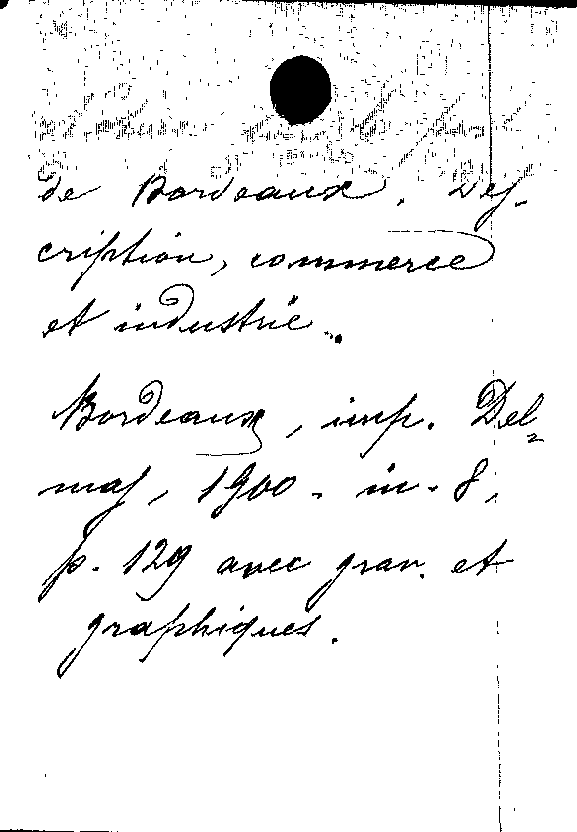 de Bordeaux. Des-
cription, commerce
et industrie.
Bordeaux, imp. Del=
mas, 1900. in-8,
p. 129 avec grav. et
graphiques.